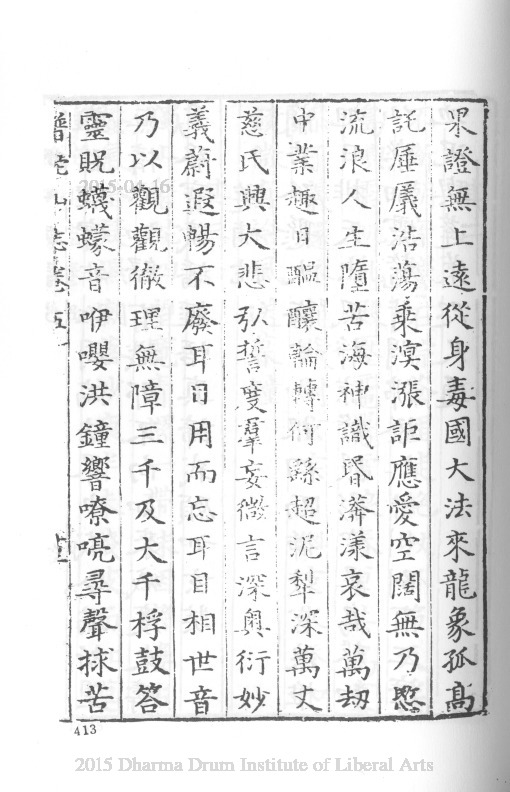 果證無上遠從身毒國大法來龍象孤高
託蜃㕒浩蕩乘溟漲詎應愛空闊無乃愍
流浪人生墮苦海神識昬漭漾哀哉萬劫
中業趣日醞釀輪轉何繇超泥犁深萬丈
慈氏興大悲弘誓度羣妄微言深奧衍妙
義蔚遐暢不廢耳日用而忘耳目相世音
乃以觀觀徹理無障三千及大千桴鼓答
靈貺蠛蠓音咿嚶洪鐘響嘹喨尋聲捄苦
普陀山志卷五
413
2015-04-16
2015 Dharma Drum Institute of Liberal Arts